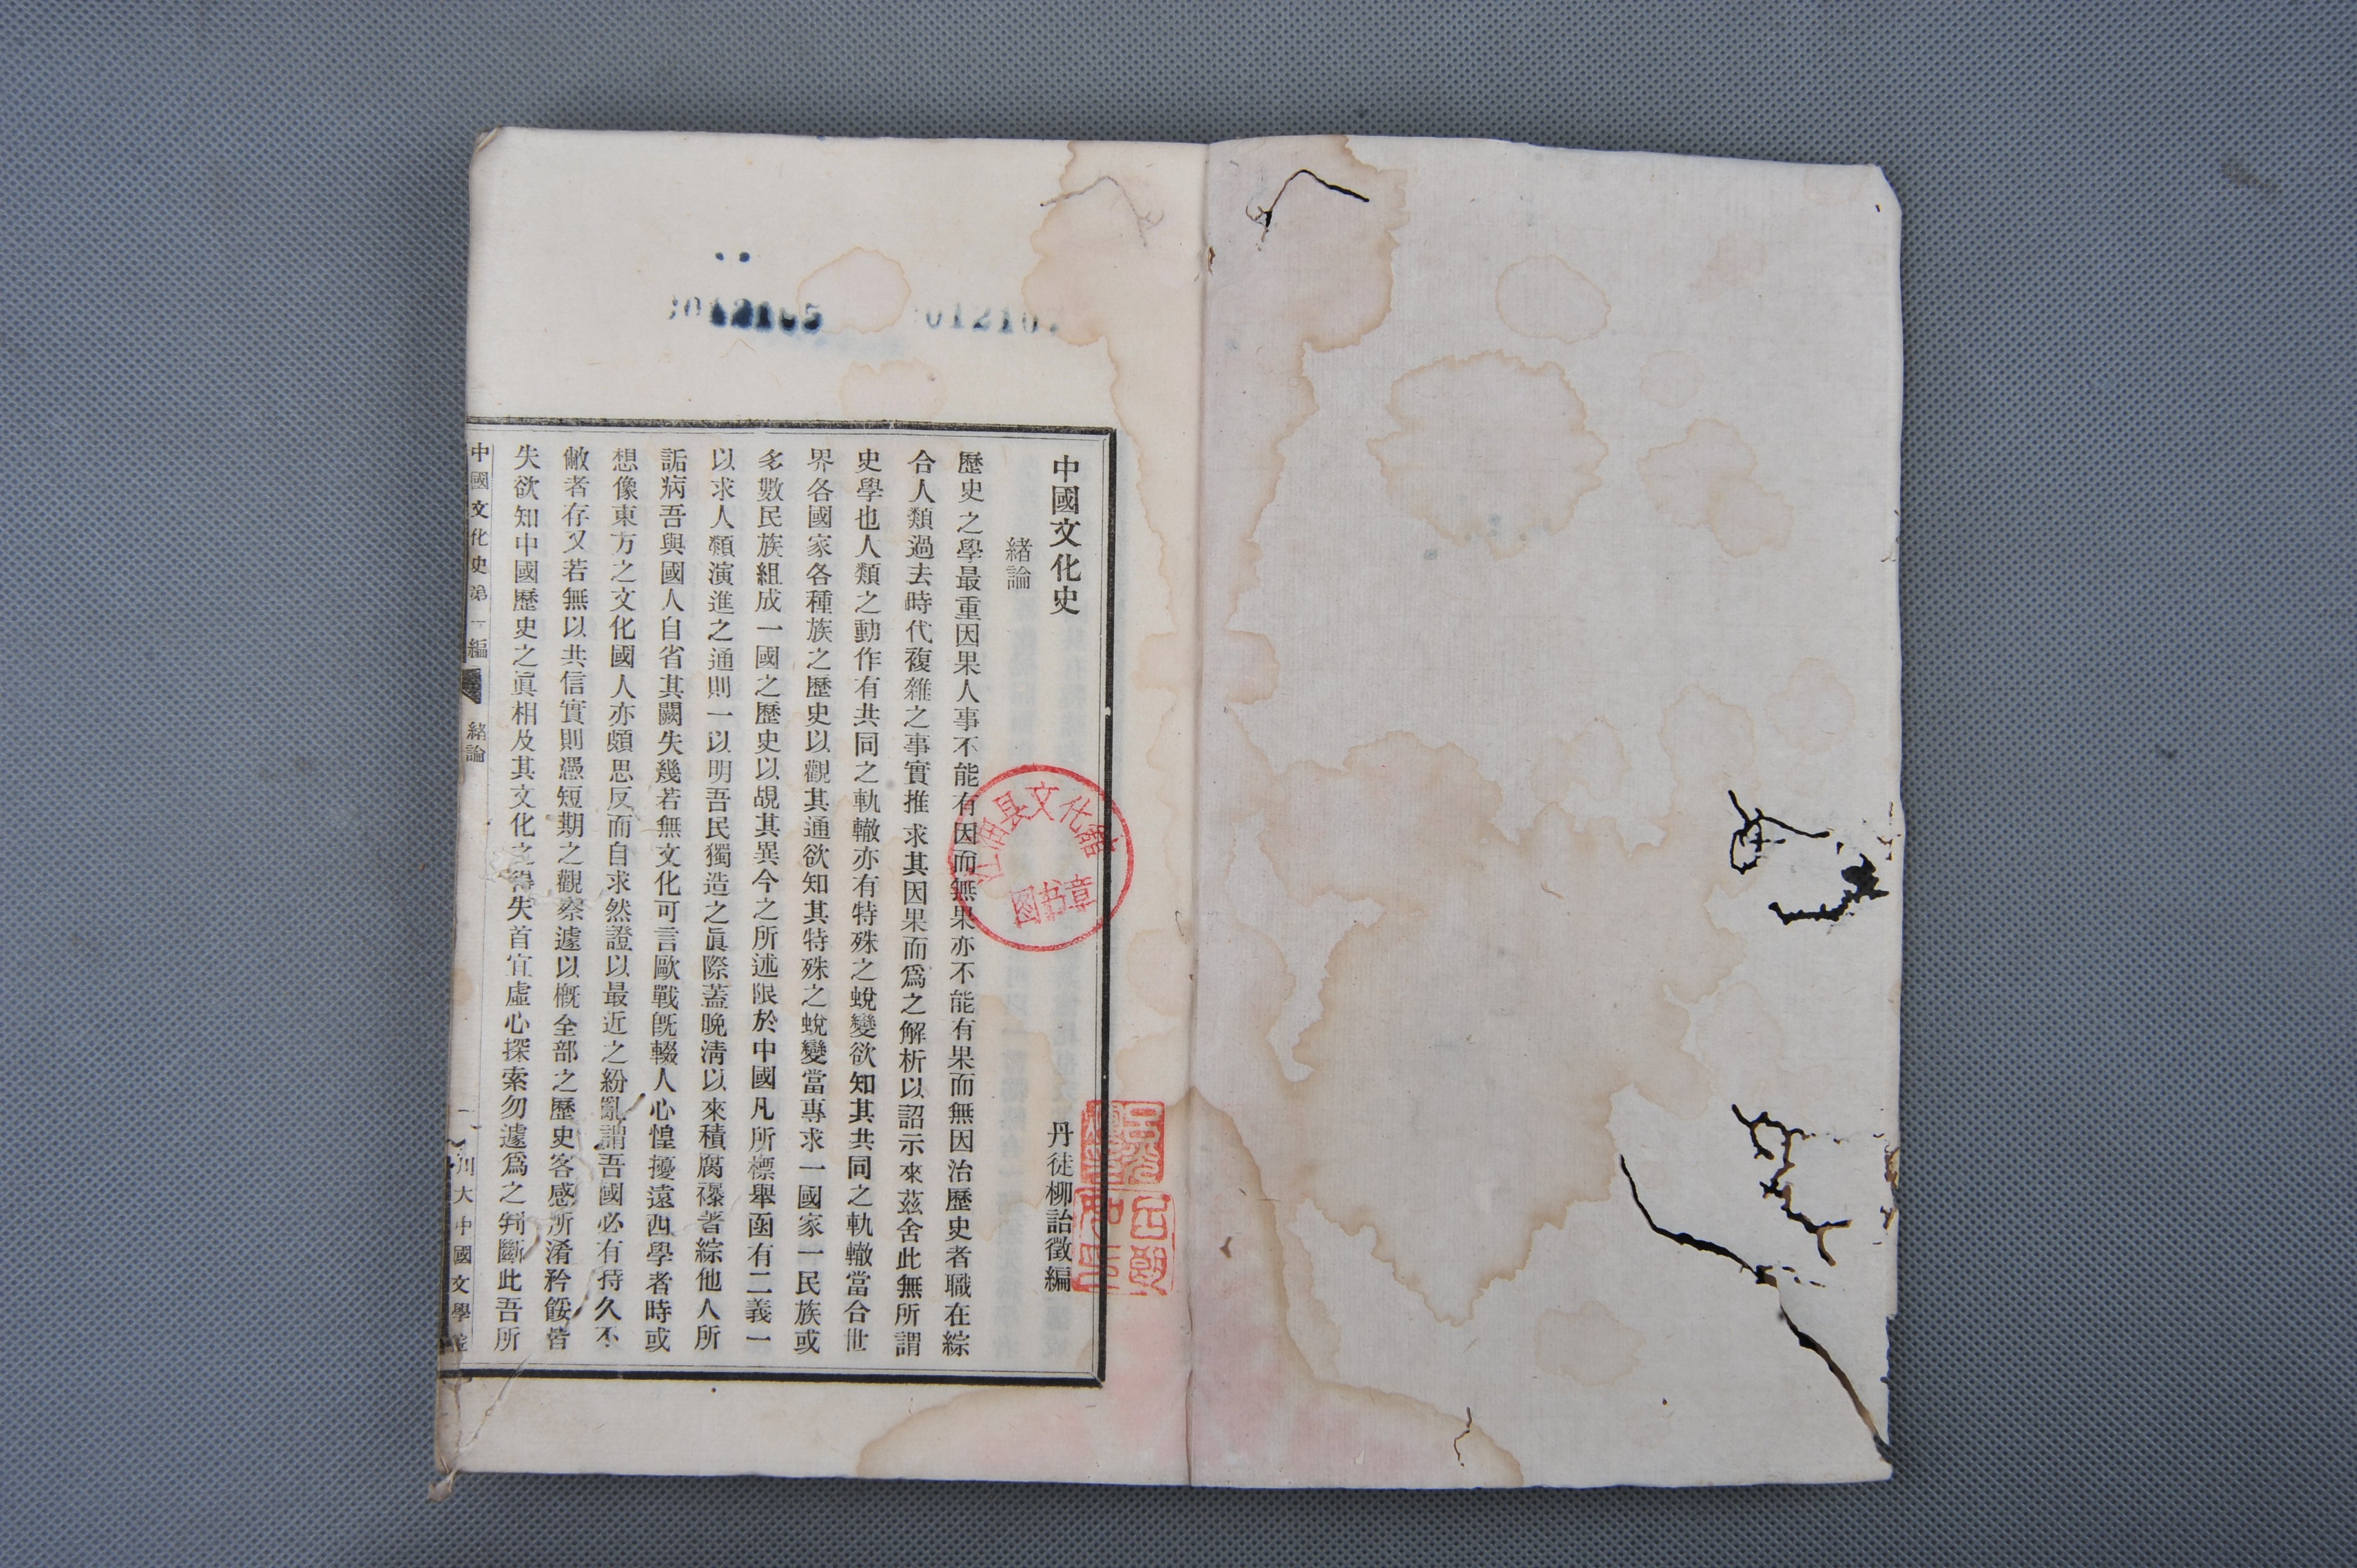 中國文化史
丹徒柳詒徵編
緒論
歷史之學最重因果人事不能有因而無果亦不能有果而無因治歷史者職在綜
合人類過去時代複雜之事實推求其因果而爲之解析以詔示來茲舍此無所謂
史學也人類之動作有共同之軌轍亦有特殊之蛻變欲知其共同之軌轍當合世
界各國家各種族之歷史以觀其通欲知其特殊之蛻變當專求一國家一民族或
多數民族組成一國之歷史以覘其異今之所述限於中國凡所標舉函有二義一
以求人類演進之通則一以明吾民獨造之眞際蓋晚淸以來積腐襮著綜他人所
詬病吾與國人自省其闕失幾若無文化可言歐戰旣輟人心惶擾遠西學者時或
想像東方之文化國人亦頗思反而自求然證以最近之紛亂謂吾國必有持久不
敝者存又若無以共信實則憑短期之觀察遽以槪全部之歷史客感所淆矜餒皆
失欲知中國歷史之眞相及其文化之得失首宜虛心探索勿遽爲之判斷此吾所
中國文化史第一編
緒論
一
川大中國文學
县文化館
图书章
12105
01210